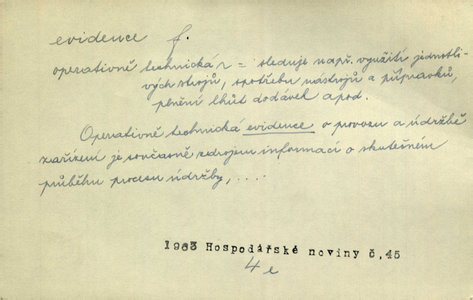 evidence f.
operativně technická ~ = sleduje např. využití jednotli-
vých strojů, spotřebu nástrojů a přípravků,
plnění lhůt dodávek apod.
Operativně technická evidence o provozu a údržbě
zařízení je současně zdrojem informací o skutečném
průběhu procesu údržby, ....
1963 Hospodářské noviny č,45
4